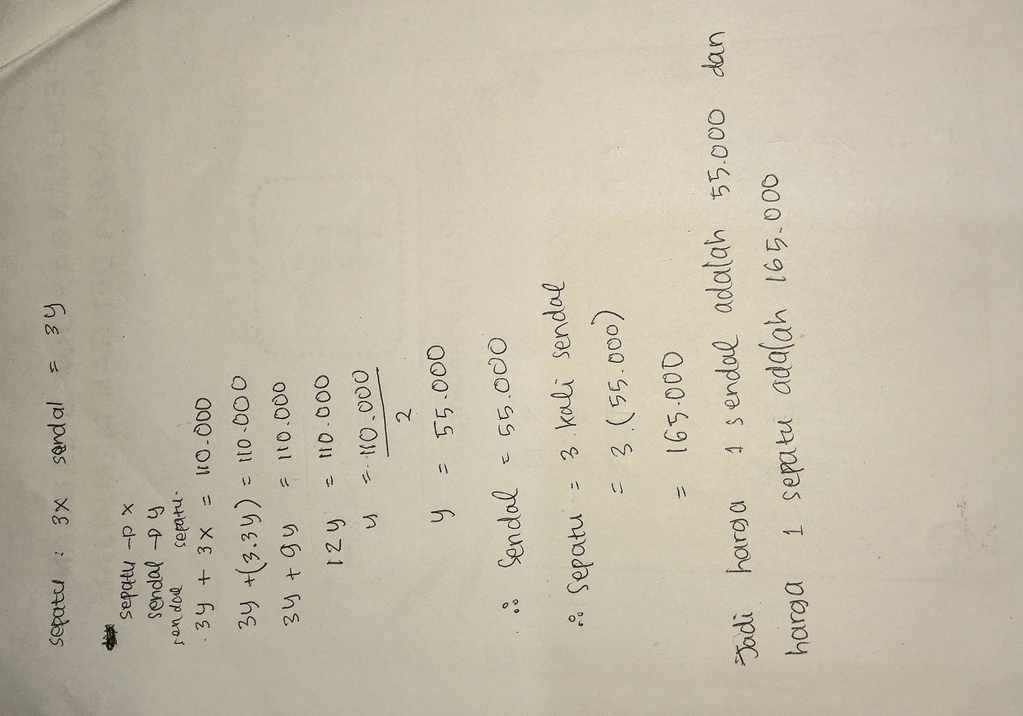 sepatu : 3x sendal = 3y
sepatu → x
sendal → y
sendal sepatu.
3y + 3x = 110.000
3y + (3.3y) = 110.000
3y + 9y = 110.000
12y = 110.000
y = 110.000
2
y = 55.000
∴ Sendal = 55.000
∴ Sepatu = 3 kali sendal
= 3.(55.000)
= 165.000
Jadi harga 1 sendal adalah 55.000 dan
harga 1 sepatu adalah 165.000